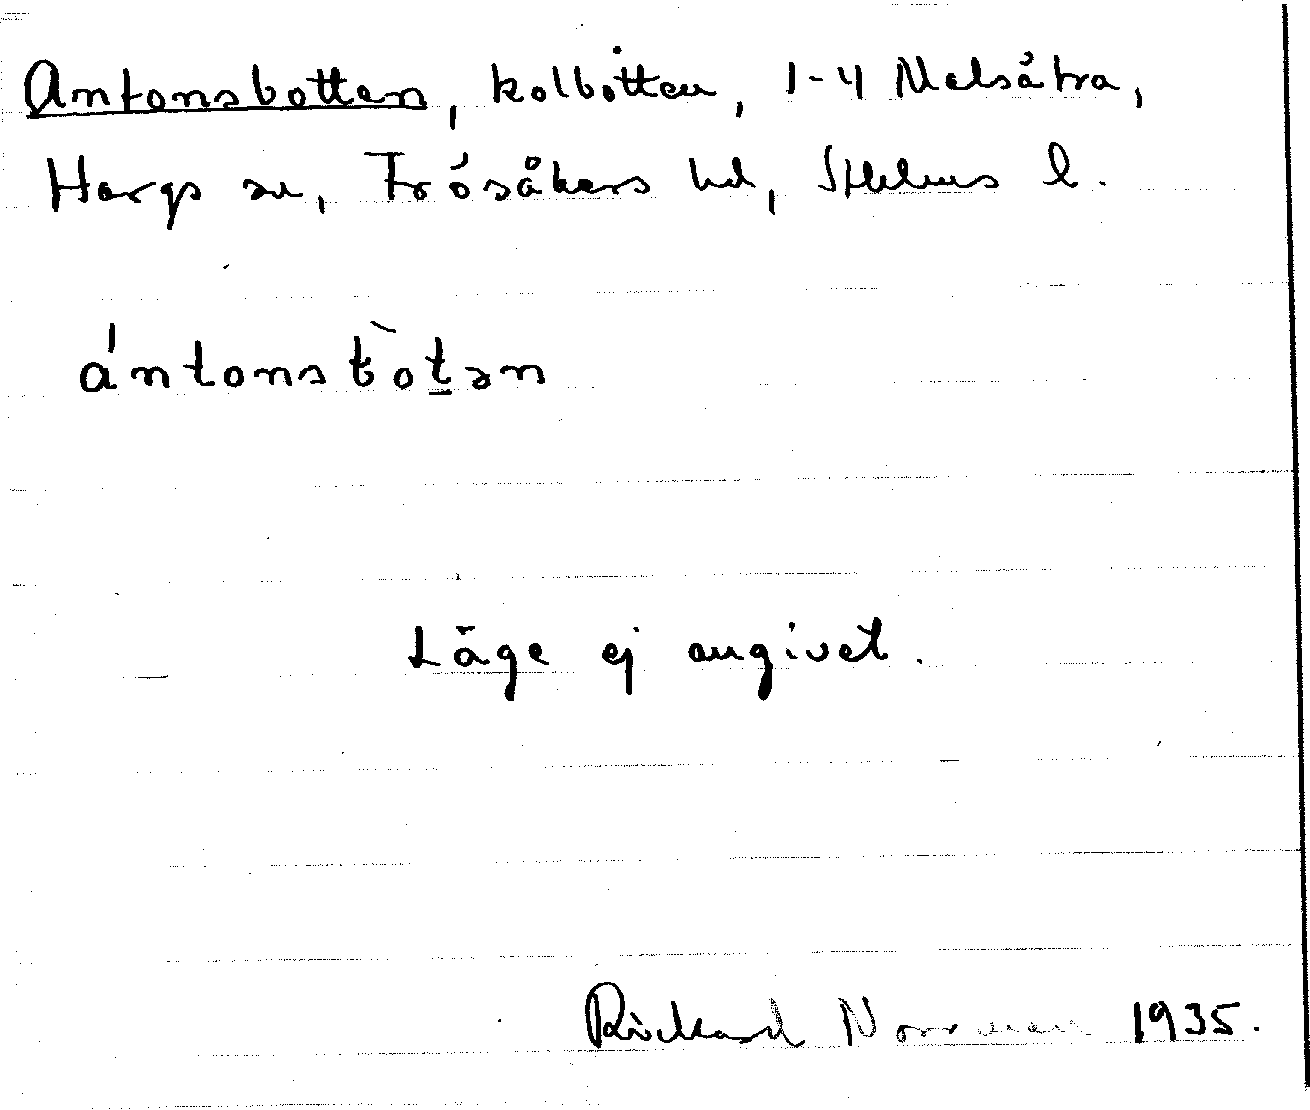 Antonsbotten, kolbotten, 1-4 Melsätra,
Hargs sn, Frösåkers hd, Sthlms l.
ántonsbòtən
Läge ej angivet.
Rickard Norrman 1935.